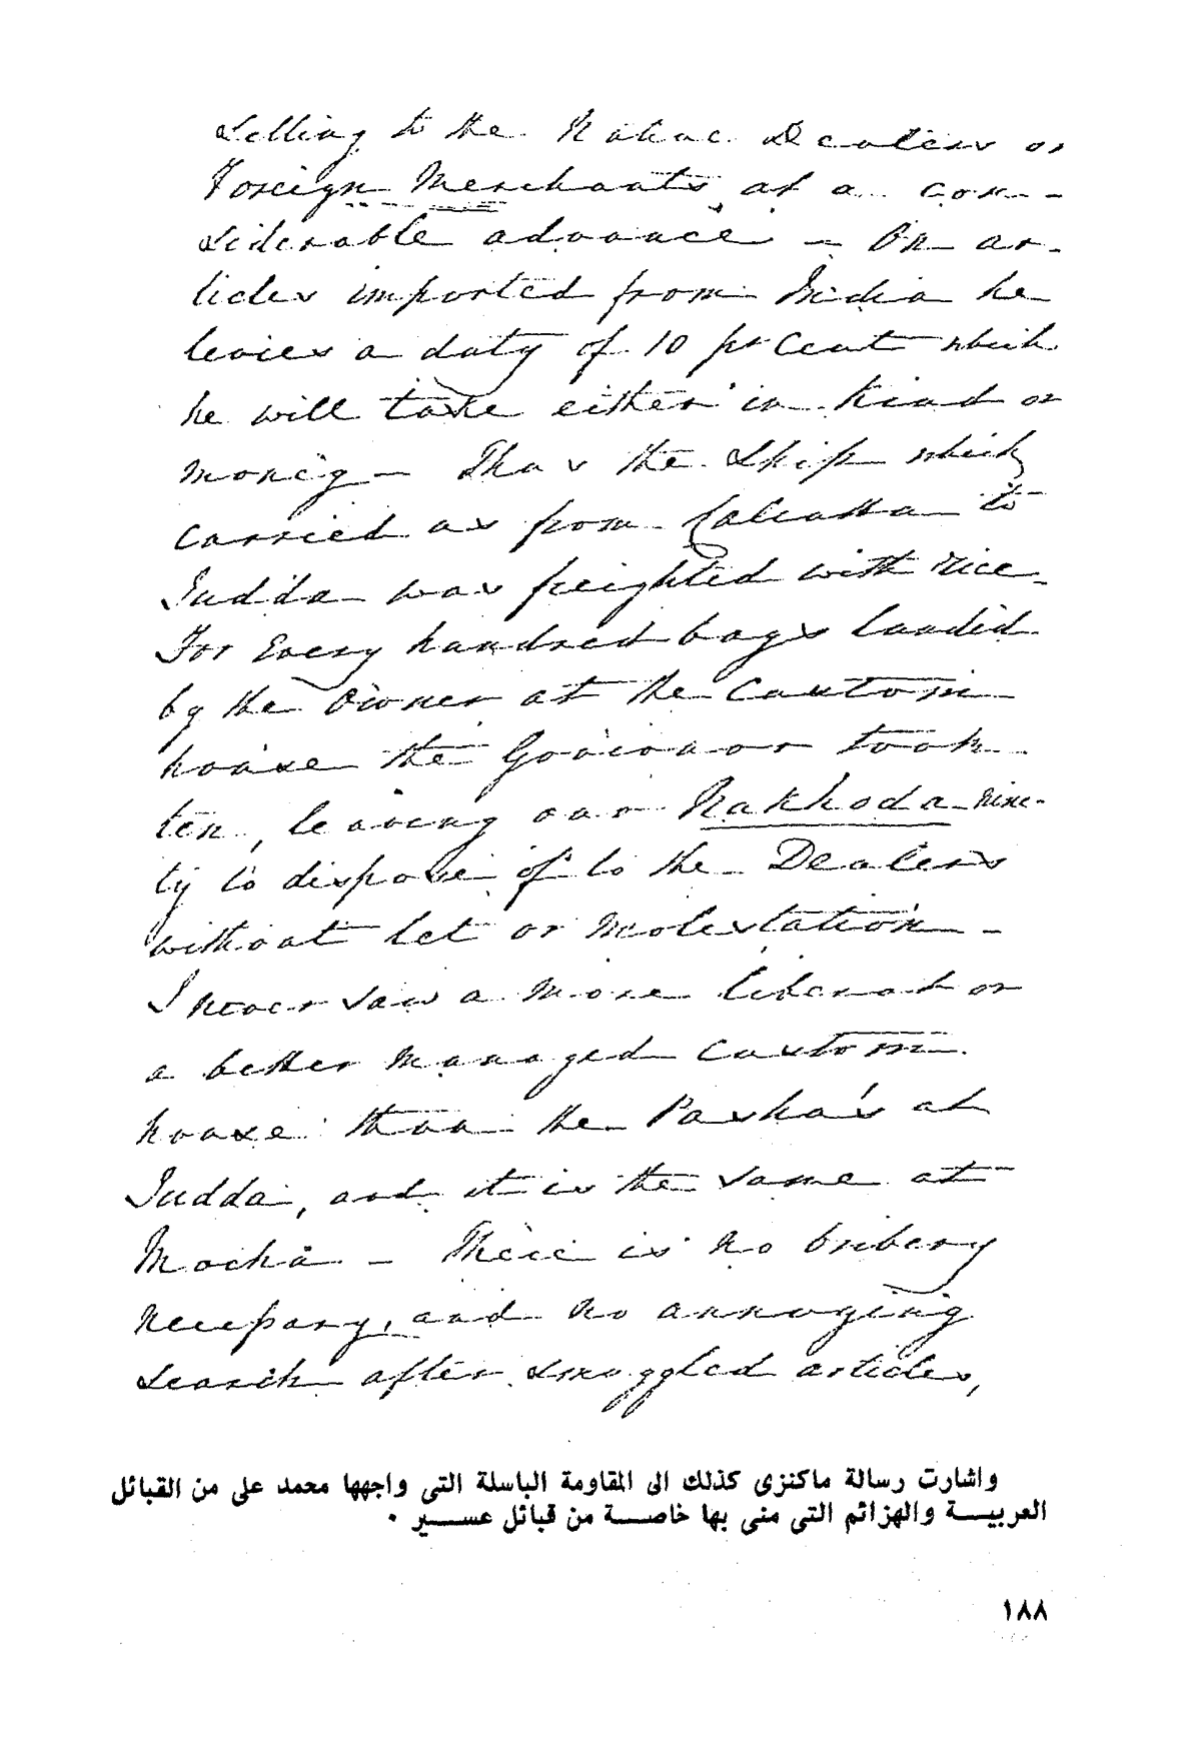 selling to the Native Dealers or
Foreign Merchants at a con-
siderable advance - On ar-
ticles imported from India he
levies a duty of 10 pr Cent which
he will take either in Kind or
money - Thus the Ship which
carried us from Calcutta to
Judda was freighted with rice
For Every hundred bags landed
by the Owner at the Custom
house the Governor took
ten, leaving our Nakhoda nine-
ty to dispose of to the Dealers
without let or molestation -
I never saw a more liberal or
a better managed Custom
house than the Pasha's at
Judda, and it is the same at
Mocha - There is no bribery
necessary, and no annoying
search after smuggled articles,
واشارت رسالة ماكنزى كذلك الى المقاومة الباسلة التى واجهها محمد على من القبائل
العربيـــة والهزائم التى منى بها خاصـــة من قبائل عســـير ٠
١٨٨